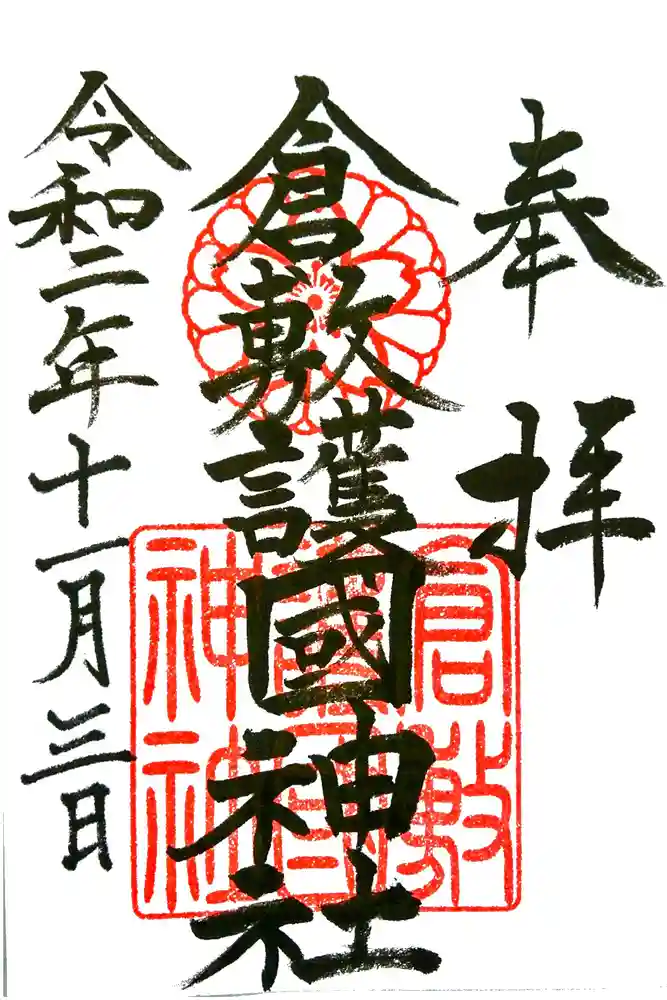 奉拝
倉敷護國神社
令和二年十一月三日
倉敷
護國
神社